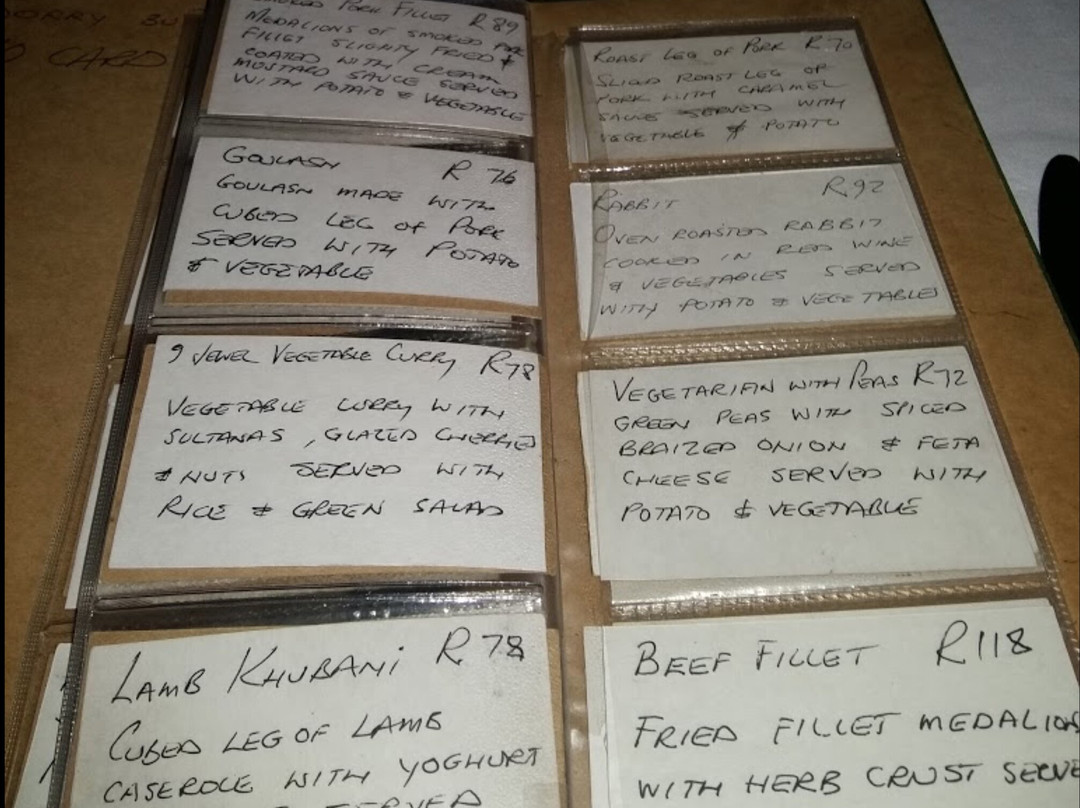 SORRY BUT
CARD
SMOKED PORK FILLET R89
MEDALIONS OF SMOKED PORK
FILLET SLIGHTY FRIED &
COATED WITH CREAM
MUSTARD SAUCE SERVED
WITH POTATO & VEGETABLE
GOULASH R 76
GOULASH MADE WITH
CUBED LEG OF PORK
SERVED WITH POTATO
& VEGETABLE
9 JEWEL VEGETABLE CURRY R78
VEGETABLE CURRY WITH
SULTANAS , GLAZED CHERRIES
& NUTS SERVED WITH
RICE & GREEN SALAD
LAMB KHUBANI R 78
CUBED LEG OF LAMB
CASEROLE WITH YOGHURT
SERVED
ROAST LEG OF PORK R 70
SLICED ROAST LEG OF
PORK WITH CARAMEL
SAUCE SERVED WITH
VEGETABLE & POTATO
RABBIT R92
OVEN ROASTED RABBIT
COOKED IN RED WINE
& VEGETABLES SERVED
WITH POTATO & VEGETABLES
VEGETARIAN WITH PEAS R72
GREEN PEAS WITH SPICED
BRAIZED ONION & FETA
CHEESE SERVED WITH
POTATO & VEGETABLE
BEEF FILLET R118
FRIED FILLET MEDALIONS
WITH HERB CRUST SERVE